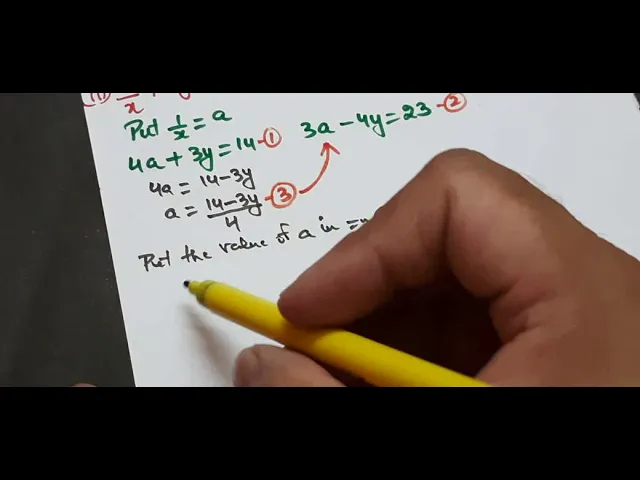 (iii)
x
Put 1/x = a
4a + 3y = 14 - ① 3a - 4y = 23 - ②
4a = 14 - 3y
a = (14 - 3y)/4 - ③
Put the value of a in